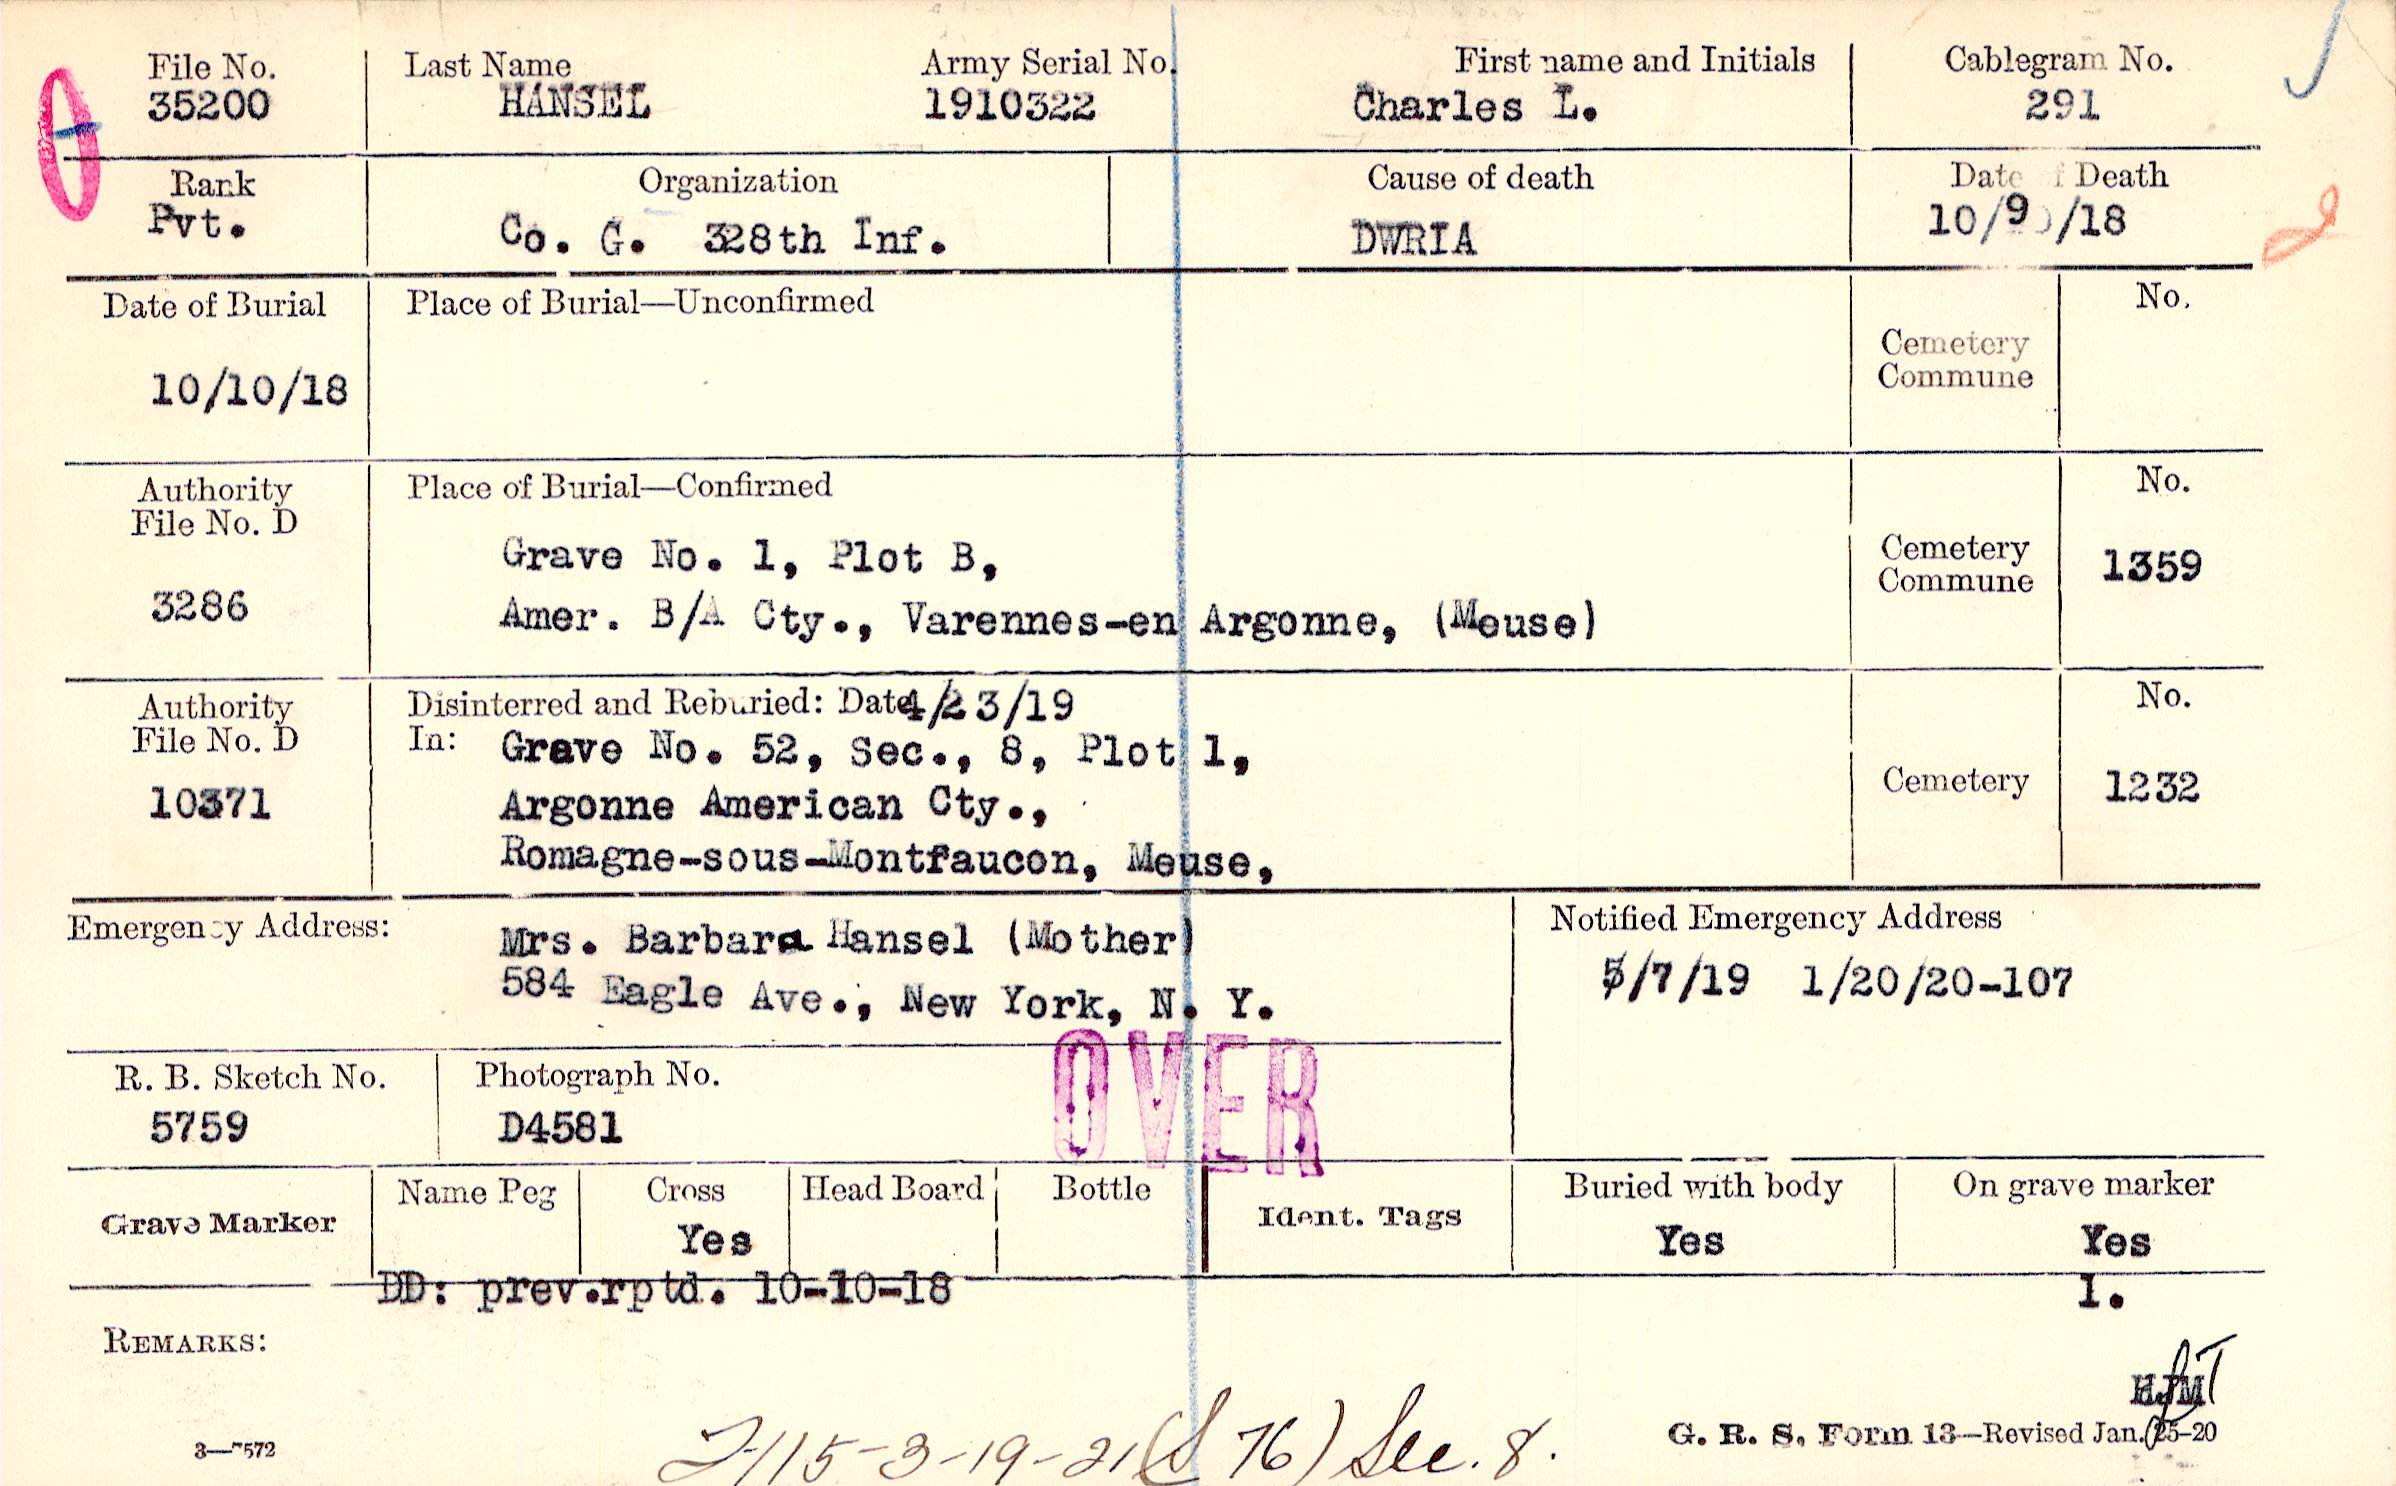 File No. Last Name Army Serial No. First name and Initials Cablegram No.
35200 HANSEL 1910322 Charles L. 291
Rank Organization Cause of death Date of Death
Pvt. Co. G. 328th Inf. DWRIA 10/9 /18
Date of Burial Place of Burial—Unconfirmed No.
Cemetery
Commune
10/10/18
Authority Place of Burial—Confirmed No.
File No. D
Grave No. 1, Plot B, Cemetery 1359
Commune
3286 Amer. B/A Cty., Varennes-en Argonne, (Meuse)
Authority Disinterred and Reburied: Date 4/23/19 No.
File No. D In: Grave No. 52, Sec., 8, Plot 1,
10371 Argonne American Cty., Cemetery 1232
Romagne-sous-Montfaucon, Meuse,
Emergency Address: Mrs. Barbara Hansel (Mother) Notified Emergency Address
584 Eagle Ave., New York, N. Y. 5/7/19 1/20/20-107
OVER
R. B. Sketch No. Photograph No.
5759 D4581
Grave Marker Name Peg Cross Head Board Bottle Ident. Tags Buried with body On grave marker
Yes Yes Yes
DD: prev.rptd. 10-10-18 1.
REMARKS:
HJM
3—7572 (S 76) Sec. 8. G. R. S. Form 13—Revised Jan. 25-20